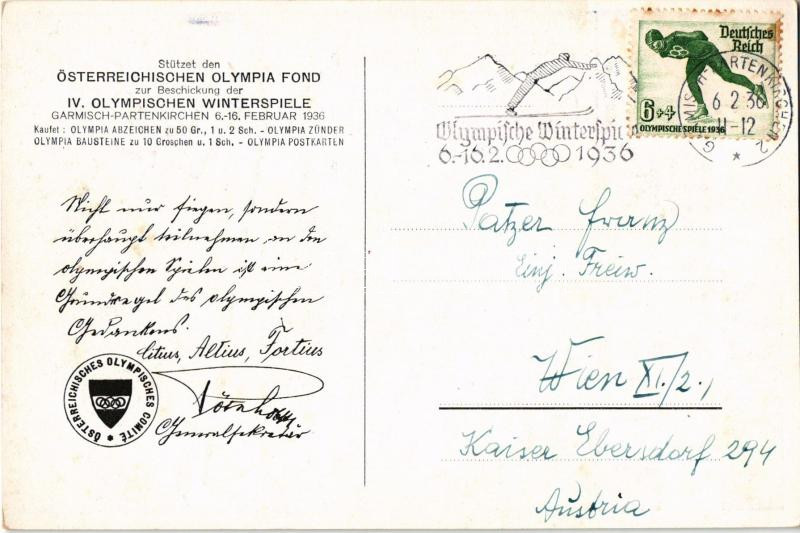 Stützet den
ÖSTERREICHISCHEN OLYMPIA FOND
zur Beschickung der
IV. OLYMPISCHEN WINTERSPIELE
GARMISCH-PARTENKIRCHEN 6.-16. FEBRUAR 1936
Kaufet : OLYMPIA ABZEICHEN zu 50 Gr., 1 u. 2 Sch. - OLYMPIA ZÜNDER
OLYMPIA BAUSTEINE zu 10 Groschen u. 1 Sch. - OLYMPIA POSTKARTEN
Nicht nur siegen, sondern
überhaupt teilnehmen an den
olympischen Spielen ist eine
Grundregel des olympischen
Gedankens.
Citius, Altius, Fortius
Generalsekretär
ÖSTERREICHISCHES OLYMPISCHES COMITÉ
Olympische Winterspi
6.-16.2. 1936
Deutsches
Reich
6+4
OLYMPISCHE SPIELE 1936
6 2 36
11-12
Patzer Franz
Einj. Freiw.
Wien XI./2.,
Kaiser Ebersdorf 294
Austria